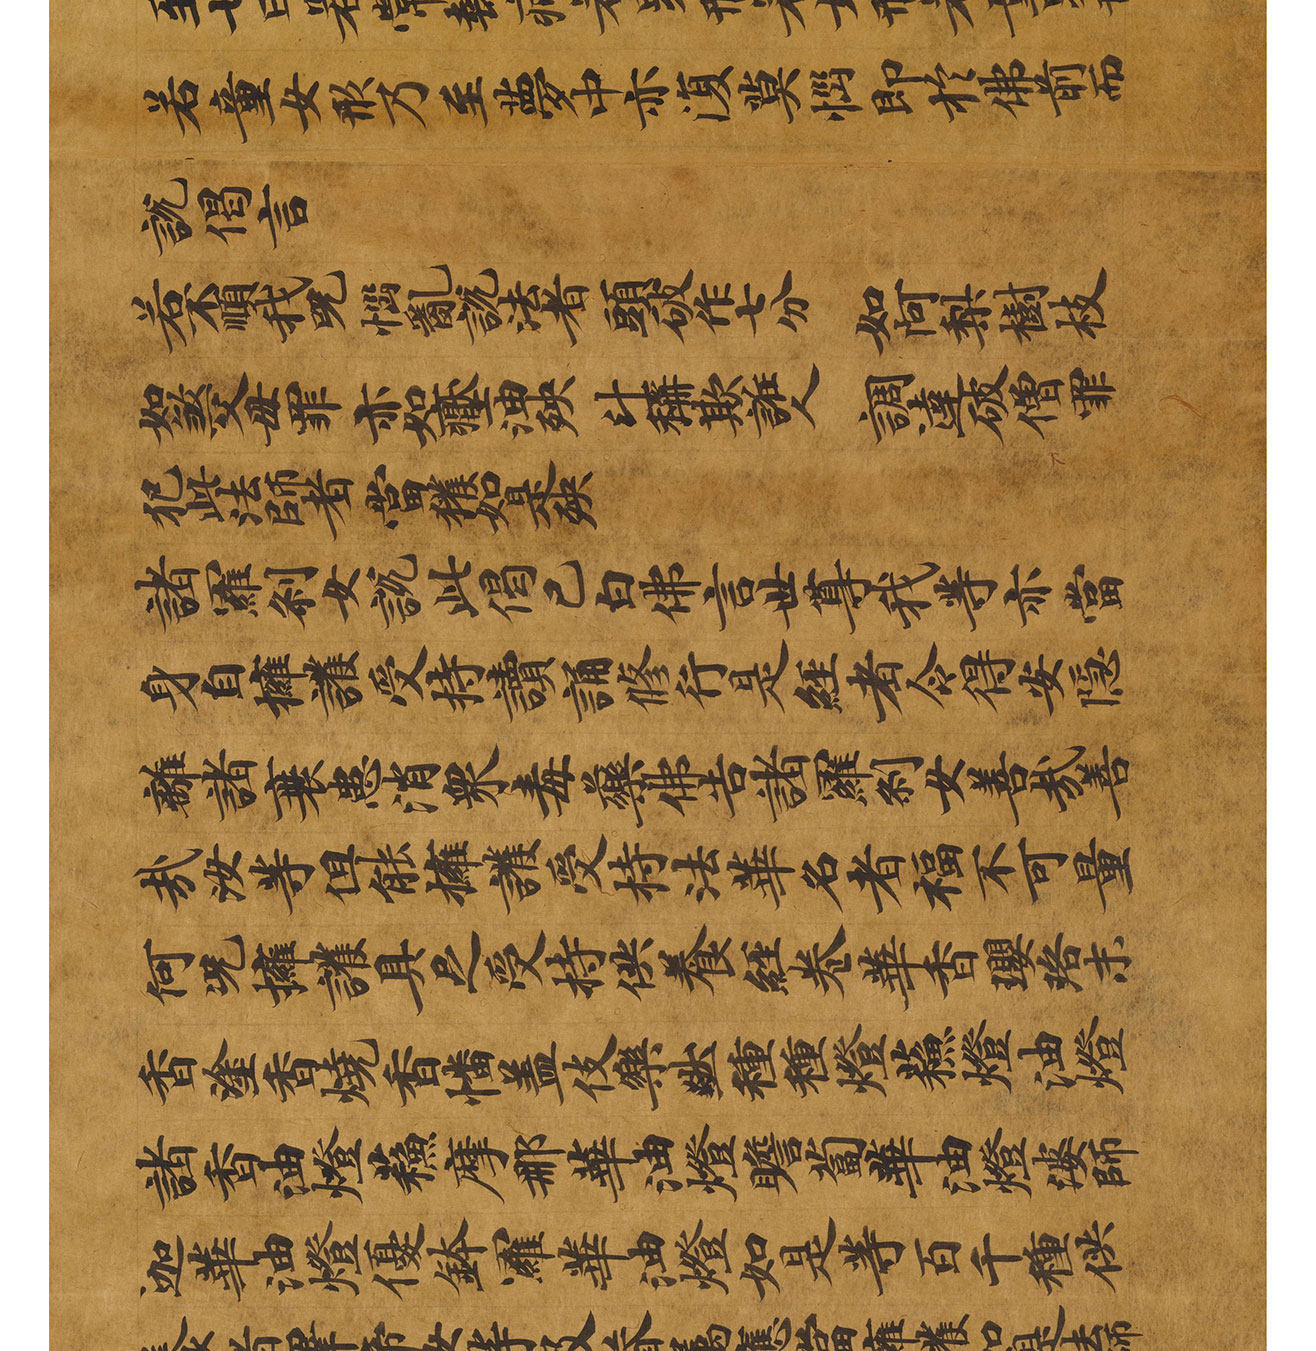 至七日若常熱病若男形若女形若童男形
若童女形乃至夢中亦復莫惱即於佛前而
說偈言
若不順我呪 惱亂說法者 頭破作七分 如阿梨樹枝
如煞父母罪 亦如壓油殃 斗秤欺誑人 調達破僧罪
犯此法師者 當獲如是殃
諸羅刹女說此偈已白佛言世尊我等亦當
身自擁護受持讀誦修行是經者令得安隱
離諸衰患消衆毒藥佛告諸羅刹女善哉善
哉汝等但能擁護受持法華名者福不可量
何況擁護具足受持供養經卷華香瓔珞末
香塗香燒香幡蓋伎樂然種種燈蘇燈油燈
諸香油燈蘇摩那華油燈瞻蔔華油燈婆師
迦華油燈優鉢羅華油燈如是等百千種供